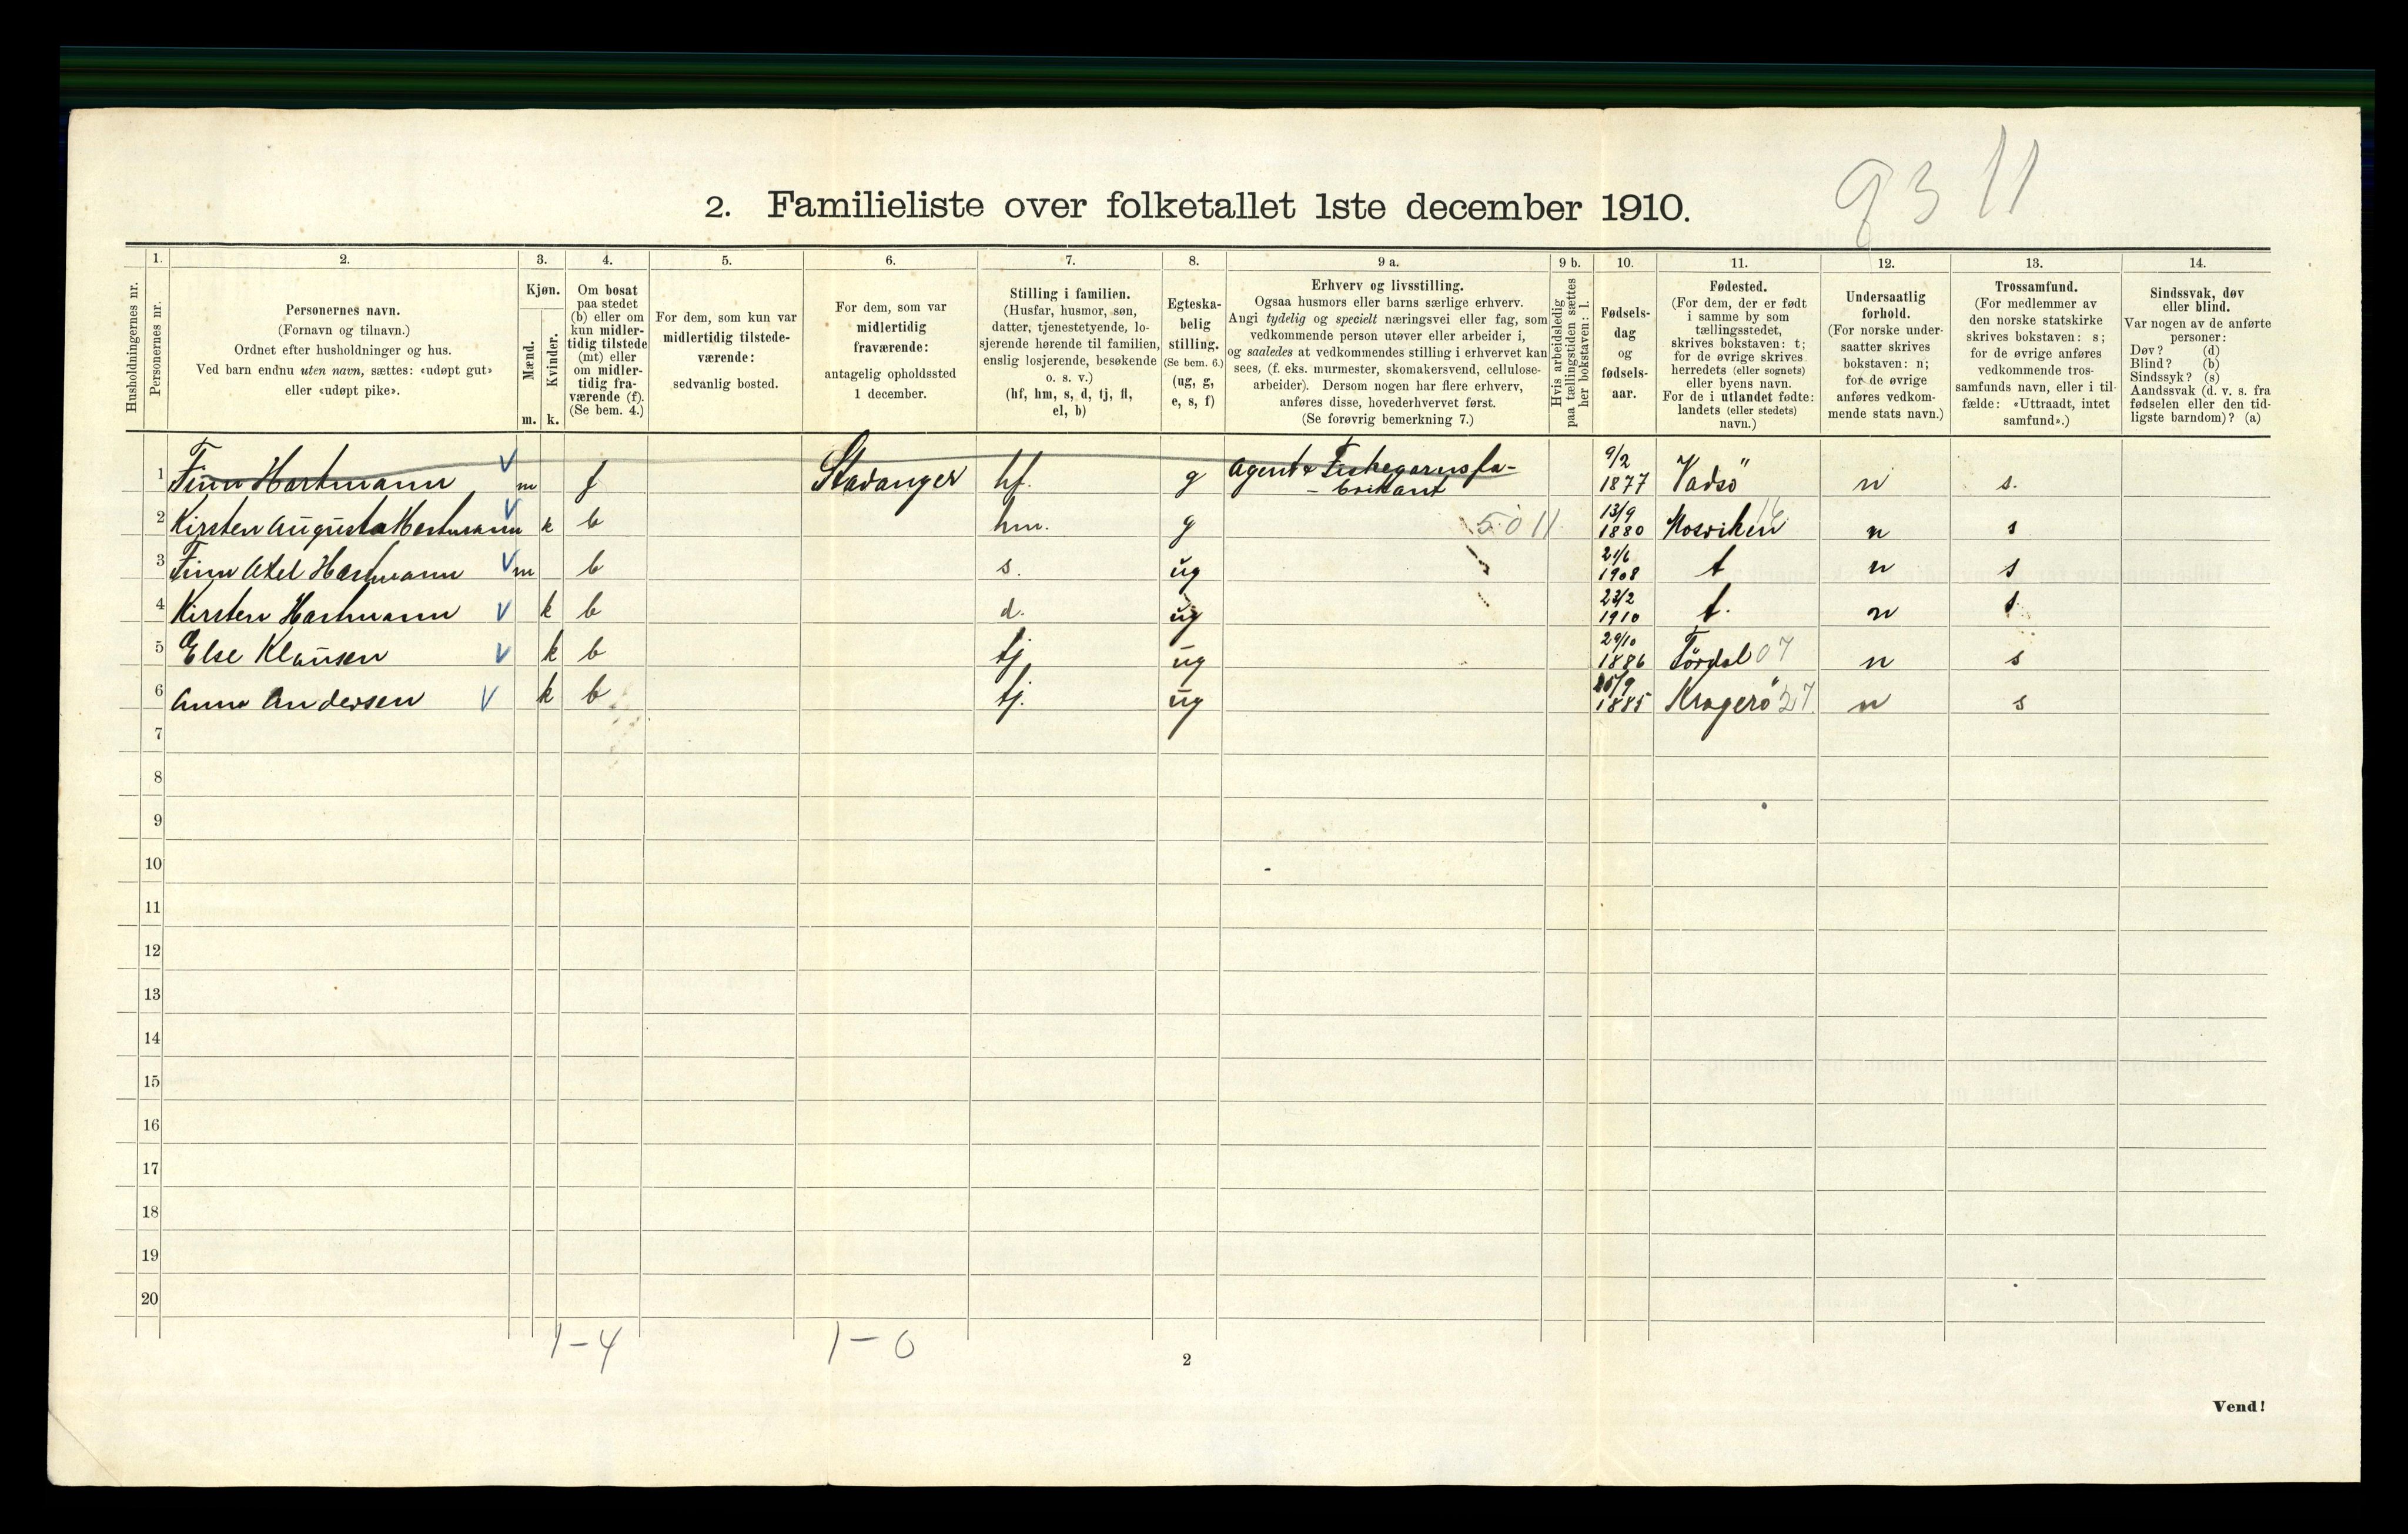 93 11
2. Familieliste over folketallet 1ste december 1910.
Husholdningernes nr.
1.
Personernes nr.
2.
Personernes navn.
(Fornavn og tilnavn.)
Ordnet efter husholdninger og hus.
Ved barn endnu uten navn, sættes: «udøpt gut»
eller «udøpt pike».
3.
Kjøn.
Mænd.
Kvinder.
m. k.
4.
Om bosat
paa stedet
(b) eller om
kun midler-
tidig tilstede
(mt) eller
om midler-
tidig fra-
værende (f).
(Se bem. 4.)
5.
For dem, som kun var
midlertidig tilstede-
værende:
sedvanlig bosted.
6.
For dem, som var
midlertidig
fraværende:
antagelig opholdssted
1 december.
7.
Stilling i familien.
(Husfar, husmor, søn,
datter, tjenestetyende, lo-
sjerende hørende til familien,
enslig losjerende, besøkende
o. s. v.)
(hf, hm, s, d, tj, fl,
el, b)
8.
Egteska-
belig
stilling.
(Se bem. 6.)
(ug, g,
e, s, f)
9 a.
Erhverv og livsstilling.
Ogsaa husmors eller barns særlige erhverv.
Angi tydelig og specielt næringsvei eller fag, som
vedkommende person utøver eller arbeider i,
og saaledes at vedkommendes stilling i erhvervet kan
sees, (f. eks. murmester, skomakersvend, cellulose-
arbeider). Dersom nogen har flere erhverv,
anføres disse, hovederhvervet først.
(Se forøvrig bemerkning 7.)
9 b.
Hvis arbeidsledig
paa tællingstiden sættes
her bokstaven: l.
10.
Fødsels-
dag
og
fødsels-
aar.
11.
Fødested.
(For dem, der er født
i samme by som
tællingsstedet,
skrives bokstaven: t;
for de øvrige skrives
herredets (eller sognets)
eller byens navn.
For de i utlandet fødte:
landets (eller stedets)
navn.)
12.
Undersaatlig
forhold.
(For norske under-
saatter skrives
bokstaven: n;
for de øvrige
anføres vedkom-
mende stats navn.)
13.
Trossamfund.
(For medlemmer av
den norske statskirke
skrives bokstaven: s;
for de øvrige anføres
vedkommende tros-
samfunds navn, eller i til-
fælde: «Uttraadt, intet
samfund».)
14.
Sindssvak, døv
eller blind.
Var nogen av de anførte
personer:
Døv? (d)
Blind? (b)
Sindssyk? (s)
Aandssvak (d. v. s. fra
fødselen eller den tid-
ligste barndom)? (a)
1 Finn Hartmann V m f Stavanger hf. g Agent & Fiskegarnsfa-
-brikant 9/2 1877 Vadsö n s.
2 Kirsten Augusta Hartmann V k b hm. g 5011 13/9 1880 Mosviken 16 n s
3 Finn Axel Hartmann V m b s. ug 21/6 1908 t n s
4 Kirsten Hartmann V k b d. ug 23/2 1910 t. n s
5 Else Klausen V k b tj ug 29/10 1886 Tördal 07 n s
6 Anna Andersen V k b tj. ug 1885 Kragerö 27 n s
7
8
9
10
11
12
13
14
15
16
17
18
19
20
1-4 1-0
2
Vend!